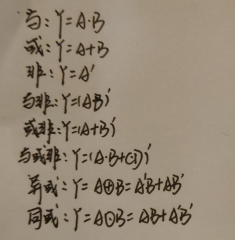 与: Y=A·B
或: Y=A+B
非: Y=A'
与非: Y=(AB)'
或非: Y=(A+B)'
与或非: Y=(A·B+CD)'
异或: Y=A⊕B=A'B+AB'
同或: Y=A⊙B=AB+A'B'